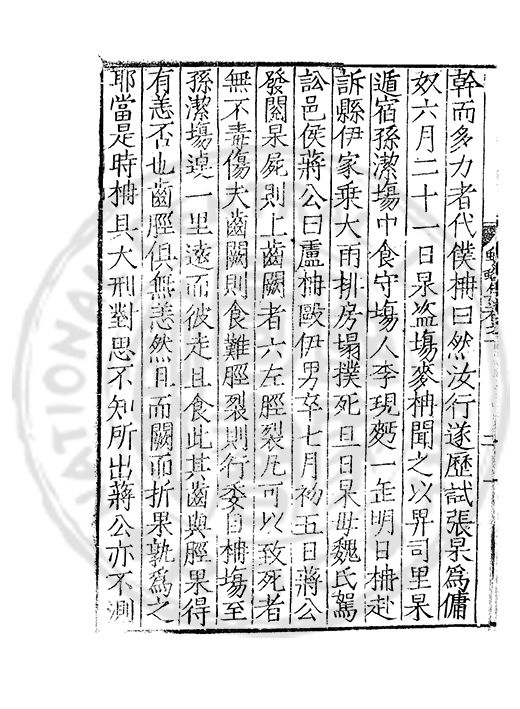 幹而多力者代僕柟曰然汝行遂歷試張杲為傭
奴六月二十一日杲盗塲麥柟聞之以畀司里杲
遁宿孫潔塲中食守塲人李現麪一盂明日柟赴
訴縣伊家乘大雨排房塌撲死旦日杲毋魏氏駕
訟邑侯蔣公曰盧柟毆伊男卒七月初五日蔣公
發閱杲屍則上齒闕者六左脛裂凡可以致死者
無不毒傷夫齒闕則食難脛裂則行委自柟塲至
孫潔塲遶一里遠而彼走且食此其齒與脛果得
有恙否也齒脛俱無恙然且而闕而折果孰為之
耶當是時柟具大刑對思不知所出蔣公亦不測
蠛蠓集卷之二
二
NATIONAL